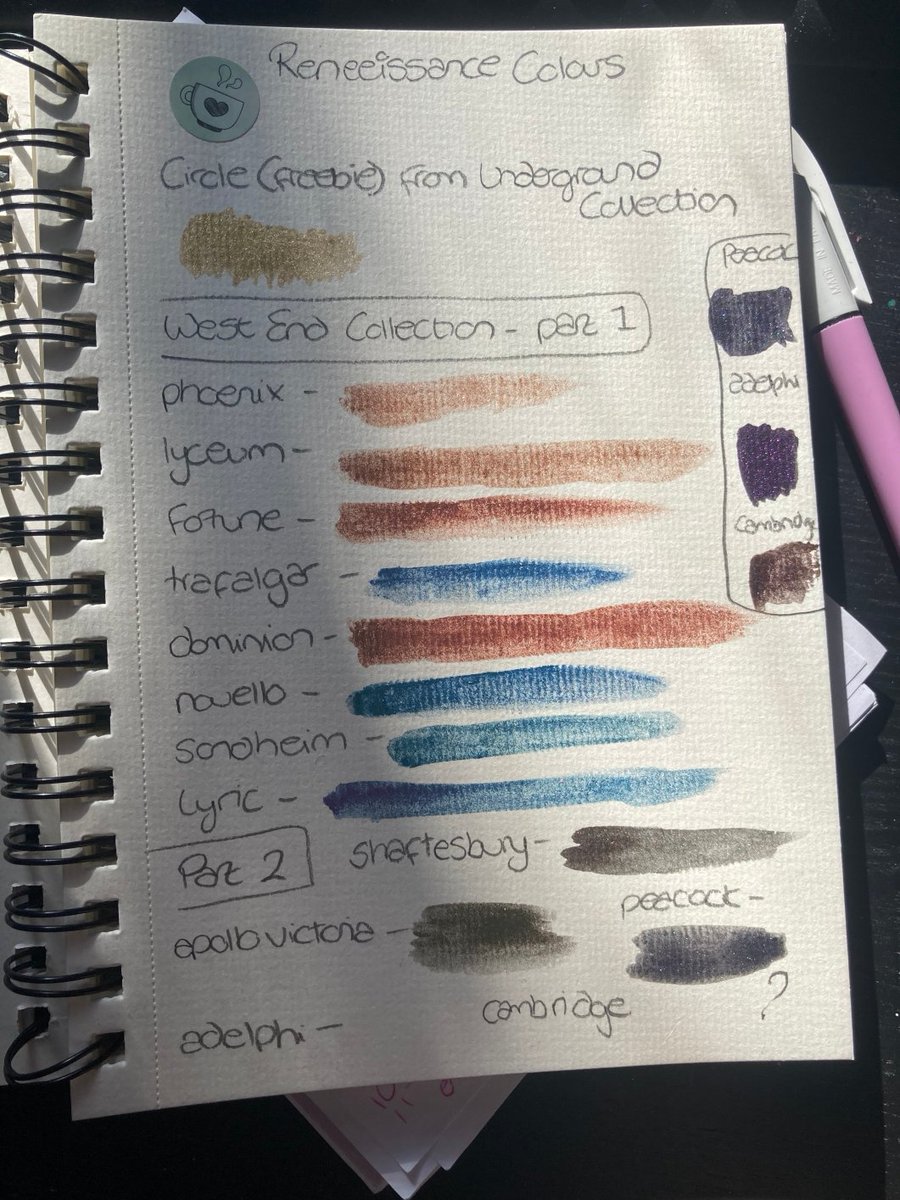 Reneeissance Colours
Circle (freebie) from Underground
Collection
West End Collection - part 1
phoenix -
lyceum -
Fotune -
trafalgar -
dominion -
novello -
sondheim -
Lyric -
Peacoc
adelphi
Cambridge
Part 2
Shaftesbury -
peacock -
apollo victoria -
Cambridge
?
adelphi -